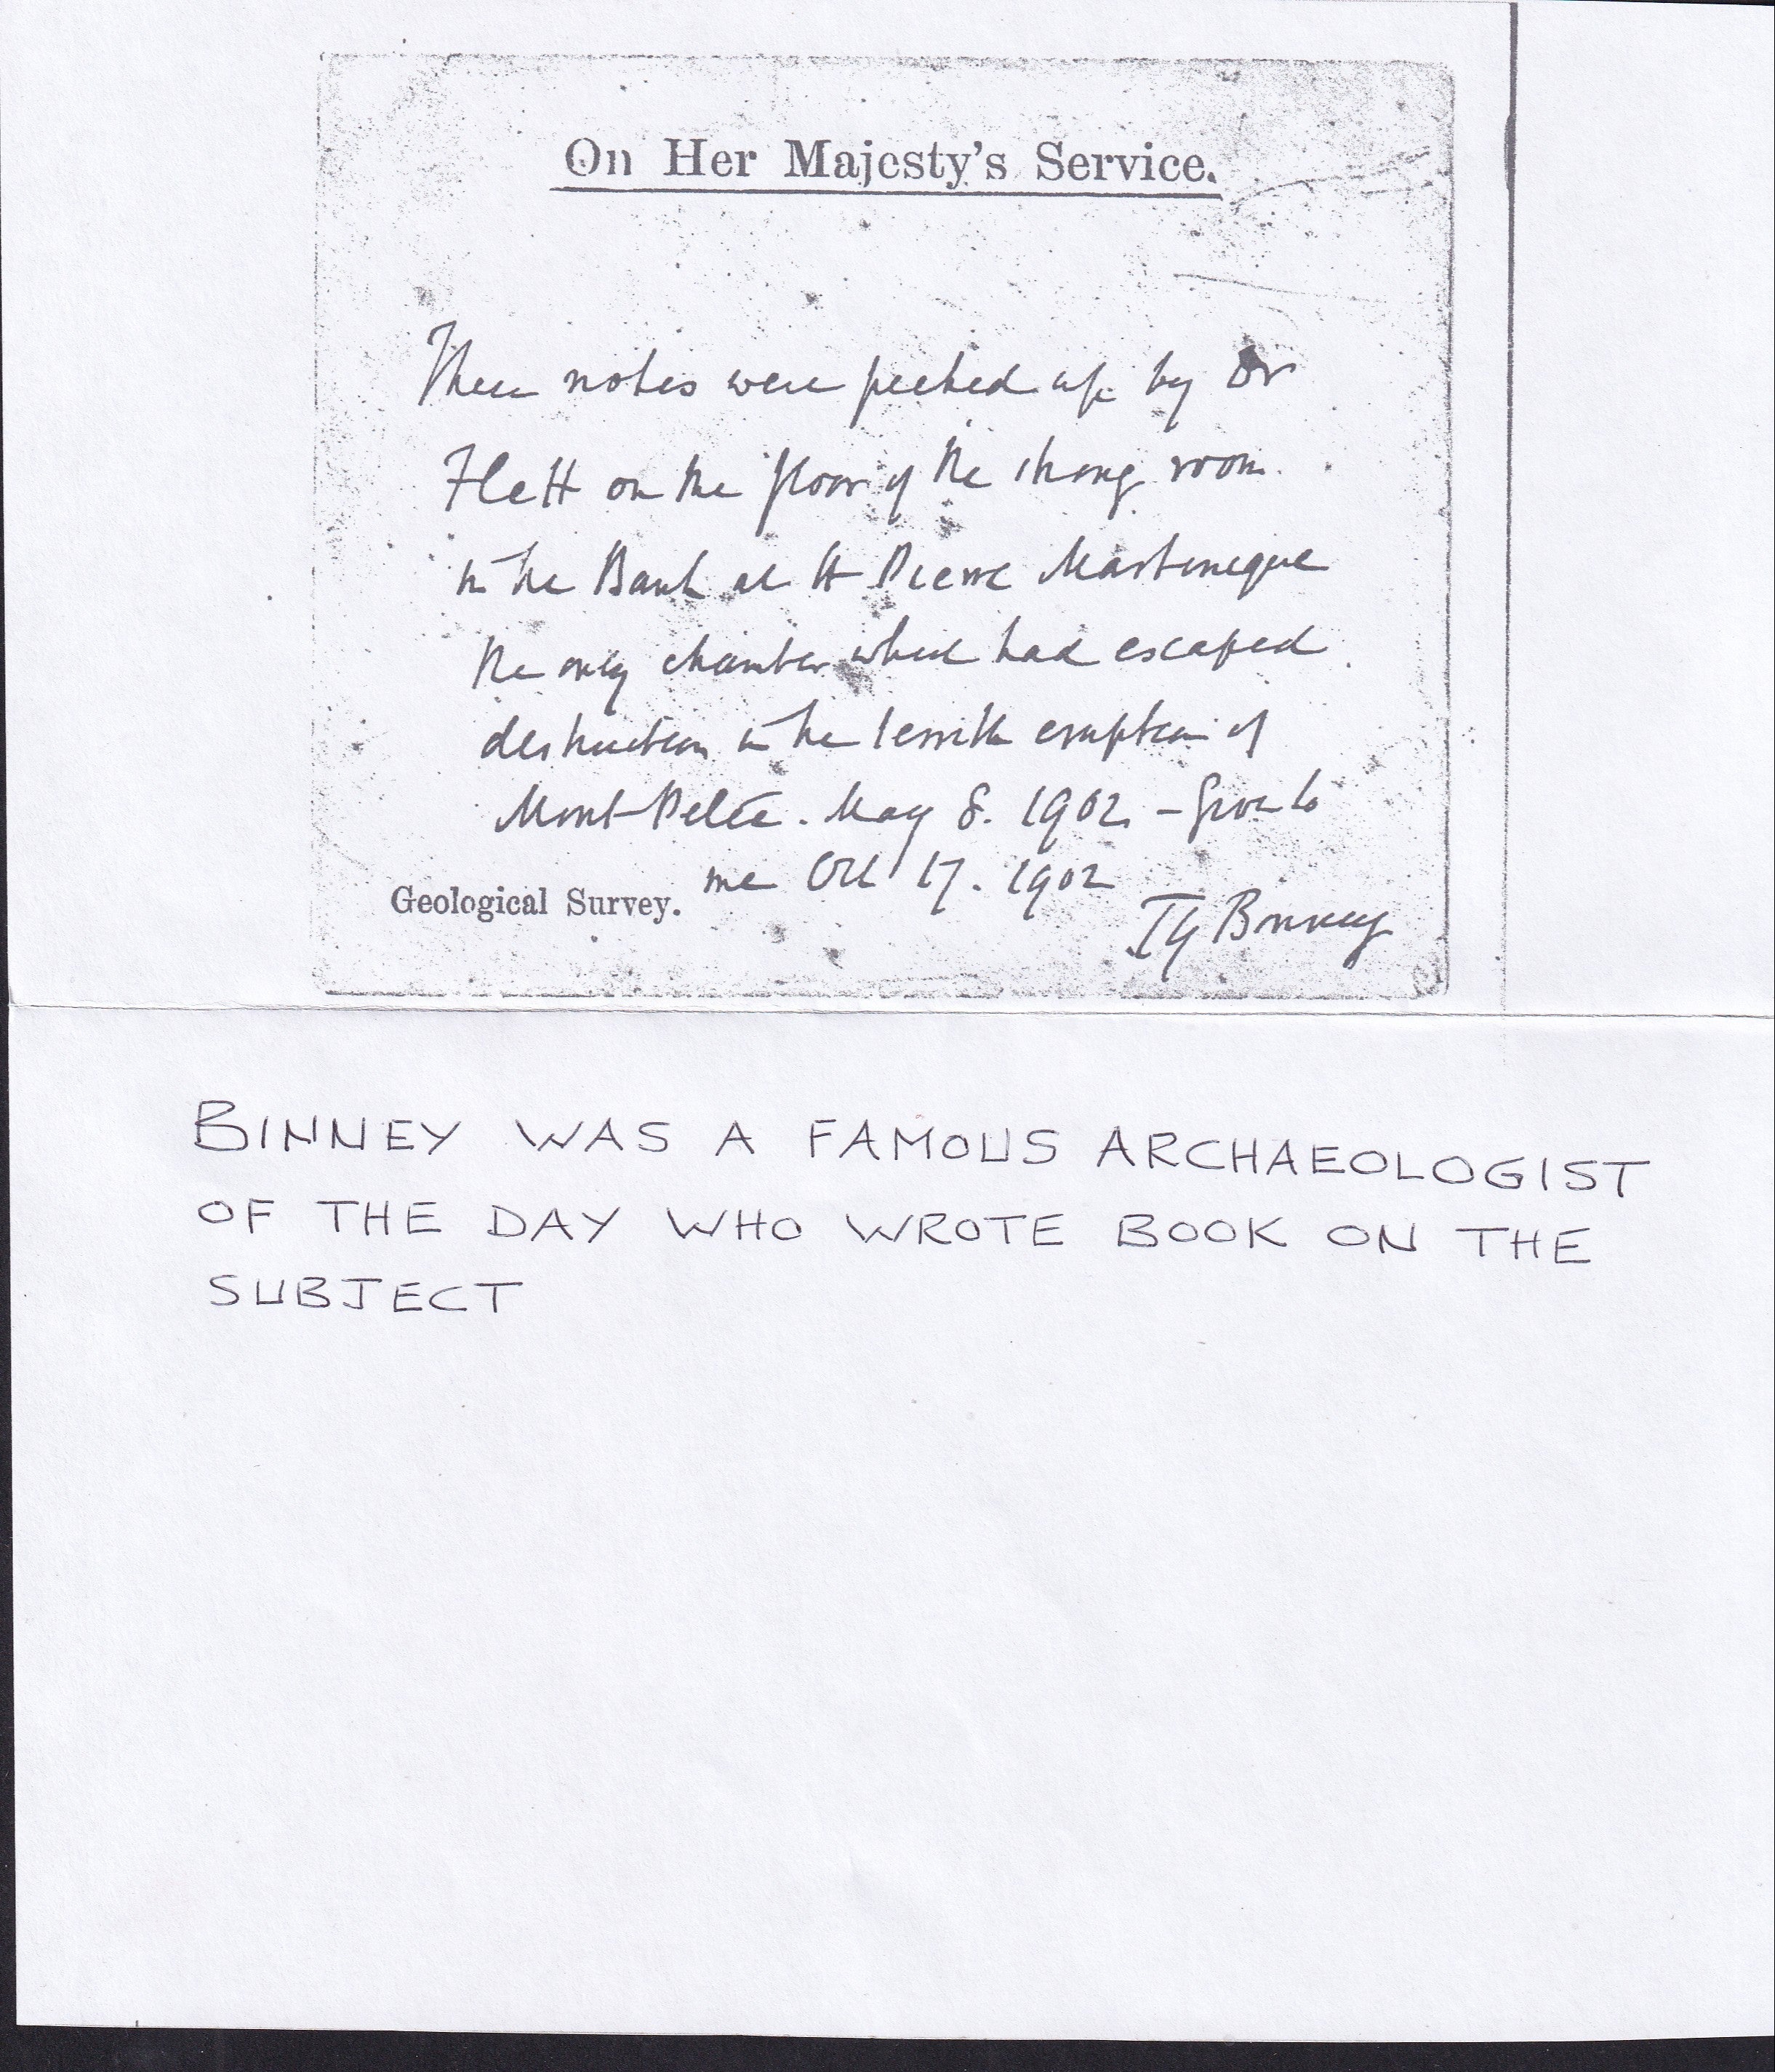 On Her Majesty's Service.
These notes were picked up by Dr
Flett on the floor of the strong room
in the Bank at St Pierre Martinique
the only chamber which had escaped
destruction in the terrible eruption of
Mont Pelée. May 8. 1902 - Given to
me Oct 17. 1902
Geological Survey.
Binney
BINNEY WAS A FAMOUS ARCHAEOLOGIST
OF THE DAY WHO WROTE BOOK ON THE
SUBJECT